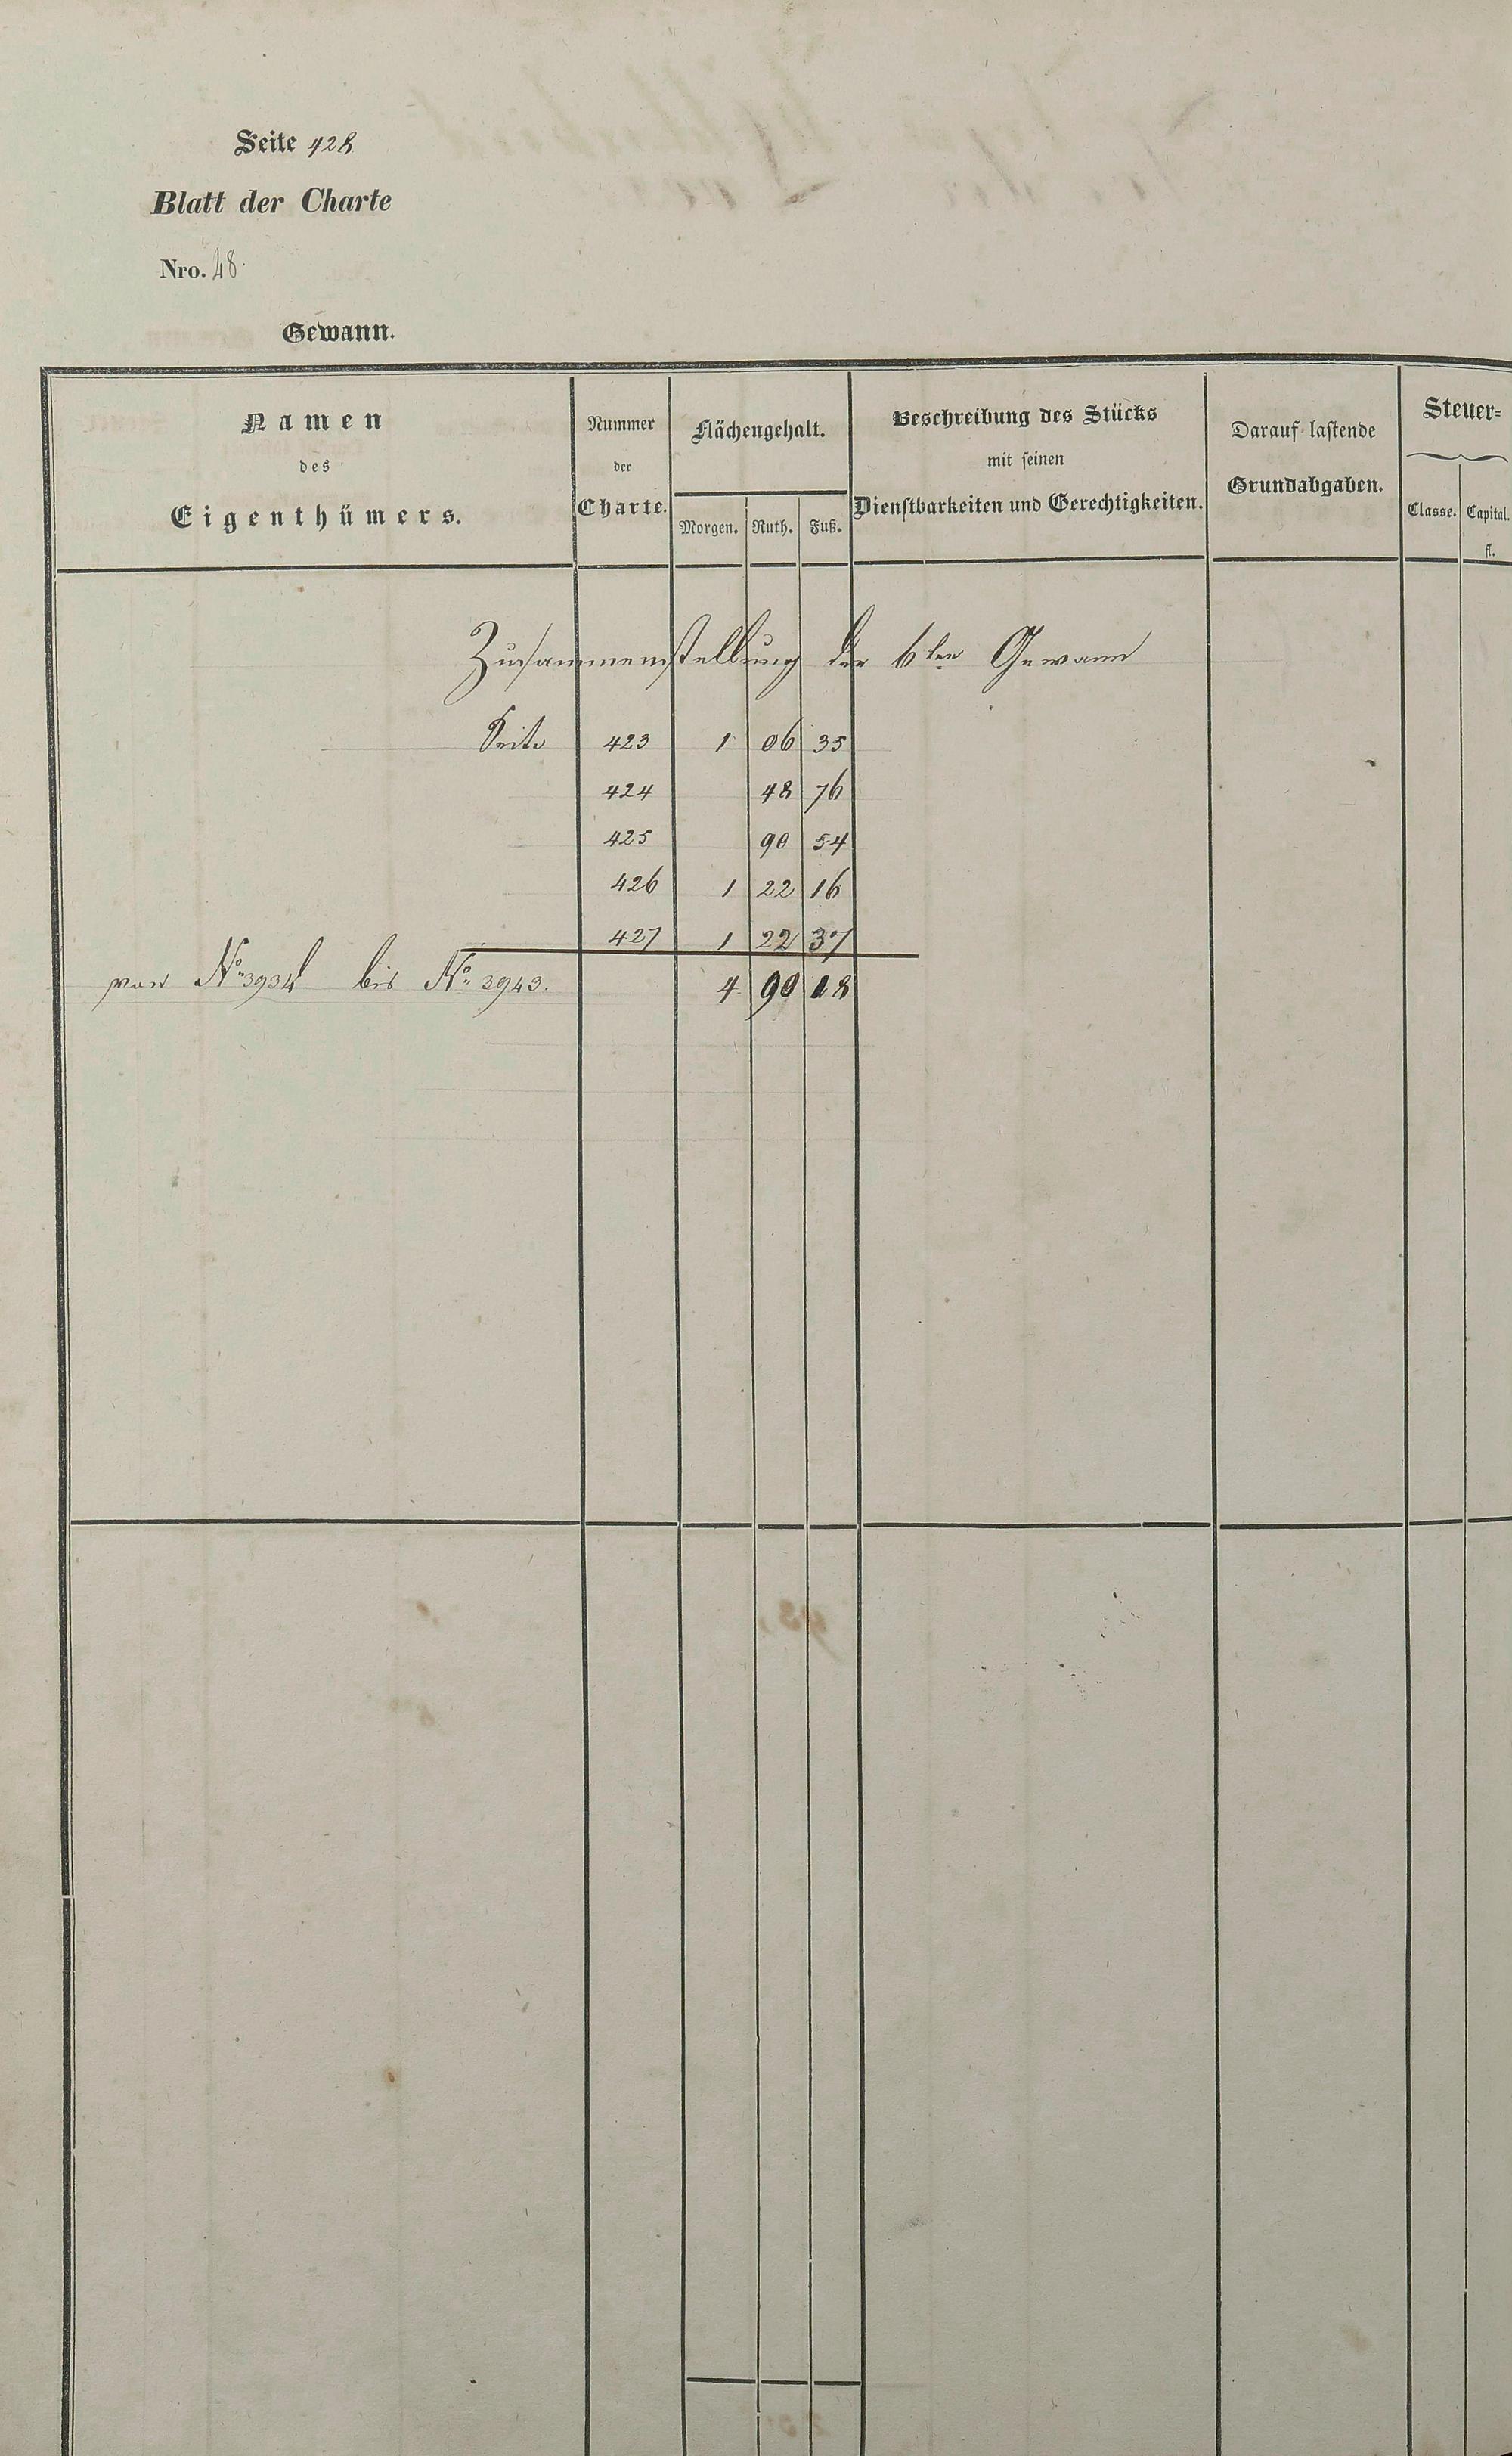 Seite 428
Blatt der Charte
Nro. 48.
Gewann.
Namen des Eigenthümers.
Nummer der Charte.
Flächengehalt.
Morgen. Ruth. Fuß.
Beschreibung des Stücks mit seinen Dienstbarkeiten und Gerechtigkeiten.
Darauf lastende Grundabgaben.
Steuer=
Classe. Capital. fl.
Zusammenstellung der 6ten Gewann
Seite 423 1 06 35
424 48 76
425 90 54
426 1 22 16
427 1 22 37
von No. bis No. 3943. 4 90 18